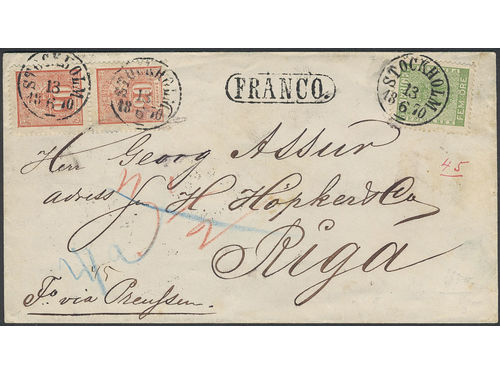 STOCKHOLM
13
18 6 70
STOCKHOLM
13
18 6 70
FRANCO.
STOCKHOLM
13
18 6 70
FEM ÖRE
45
Herr Georg Assur
adress H. Höpker & Co
Riga
45
Fo via Preussen.